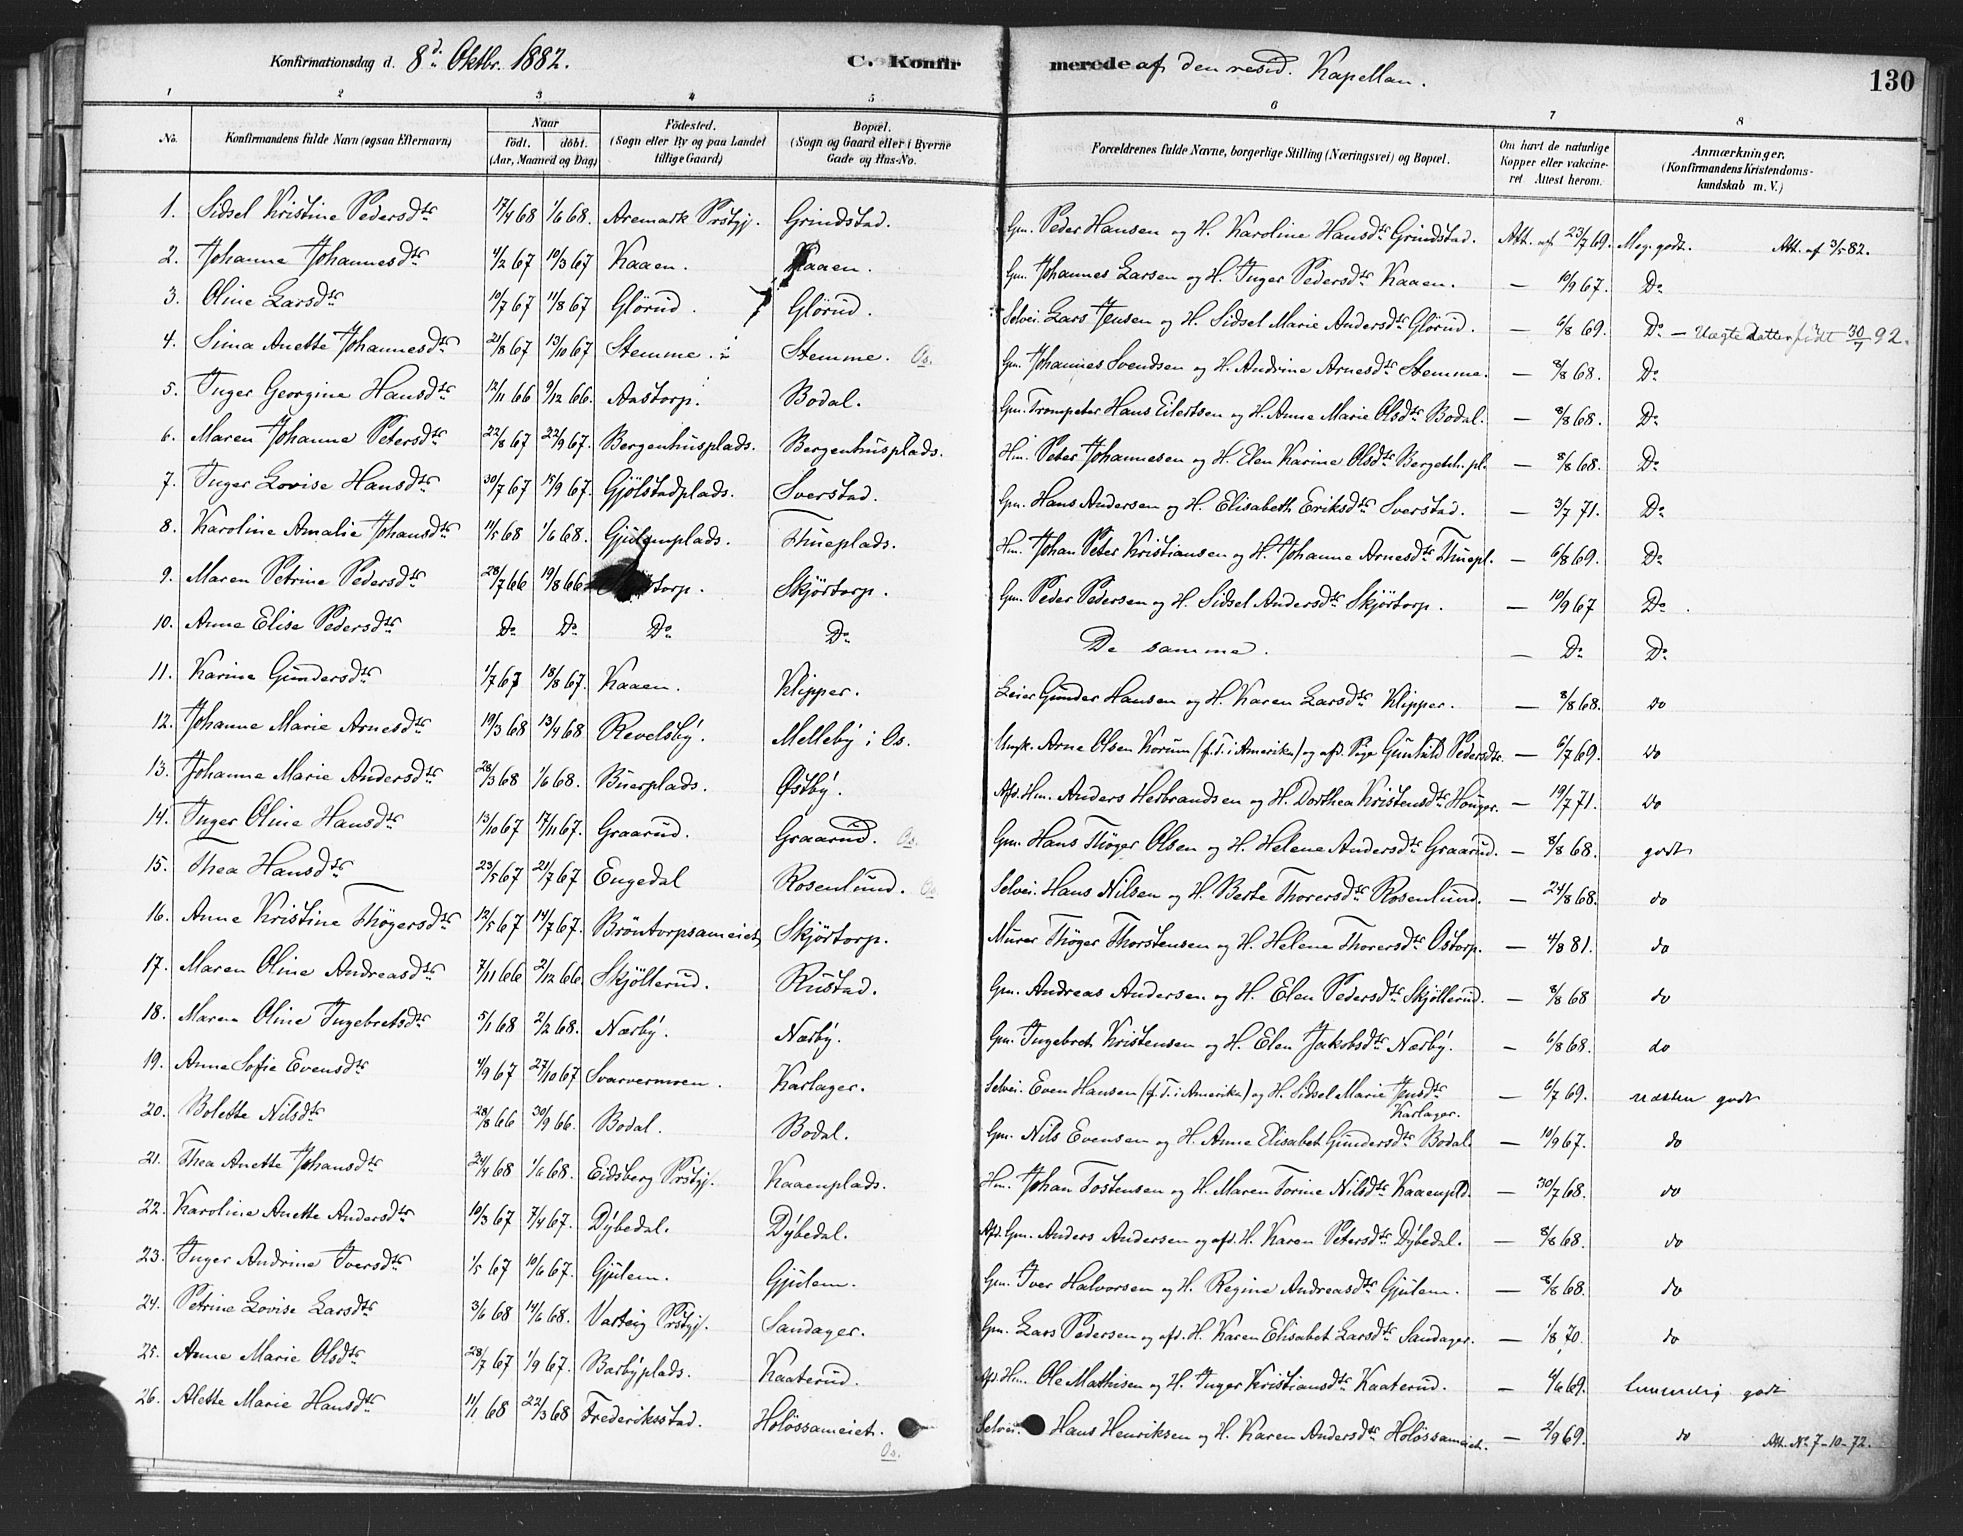 Konfirmationsdag d. 8d. Oktbr. 1882. C. Konfirmerede af den resid. Kapellan. 130
1 2 3 4 5 6 7 8
No. Konfirmandens fulde Navn (ogsaa Efternavn) Naar födt. döbt. (Aar, Maaned og Dag) Födested. (Sogn eller By og paa Landet tillige Gaard) Bopæl. (Sogn og Gaard eller i Byerne Gade og Hus-No. Forældrenes fulde Navne, borgerlige Stilling (Næringsvei) og Bopæl. Om havt de naturlige Kopper eller vakcineret Attest herom. Anmærkninger. (Konfirmandens Kristendomskundskab m. V.)
1. Sidsel Kristine Pedersdtr 17/4 68 1/6 68. Aremark Prstgj. Grindstad. Gm. Peder Hansen og H. Karoline Hansdtr Grindstad. Att. af 23/7 69. Meg. godt. Att. af 3/5 82.
2. Johanne Johannesdtr 4/2 67 10/3 67 Kaaen. Kaaen. Gm. Johannes Larsen og H. Inger Pedersdtr Kaaen. — 10/9 67. Do
3. Oline Larsdtr 10/7 67 11/8 67 Glörud. Glörud. Selvei. Lars Jensen og H. Sidsel Marie Andersdtr Glörud. — 6/8 69. Do — Uægte datter födt 30/7 92.
4. Sima Anette Johannesdtr 21/8 67 13/10 67 Stemme. Stemme. Os. Gm. Johannes Svendsen og H. Andrine Arnesdtr Stemme. — 8/8 68. Do
5. Inger Georgine Hansdtr 12/11 66 9/12 66. Aastorp. Bodal. Gm. Trompeter Hans Eilertsen og H. Anne Marie Olsdtr Bodal. — 8/8 68. Do
6. Maren Johanne Petersdtr 22/8 67 22/9 67. Bergenhusplads. Bergenhusplads. Hm. Peter Johannesen og H. Elen Karine Olsdtr Bergenh.pl. — 8/8 68. Do
7. Inger Lovise Hansdtr 30/7 67 15/9 67. Gjölstadplads. Sverstad. Gm. Hans Andersen og H. Elisabeth Eriksdtr Sverstad. — 3/7 71. Do
8. Karoline Amalie Johansdtr 11/5 68 1/6 68. Gjulemplads. Thueplads. Hm. Johan Peter Kristiansen og H. Johanne Arnesdtr Thuepl. — 6/8 69. Do
9. Maren Petrine Pedersdtr 28/7 66 19/8 66 torp. Skjörtorp. Gm. Peder Pedersen og H. Sidsel Andersdtr Skjörtorp. — 10/9 67 Do.
10. Anne Elise Pedersdtr Do Do Do Do De samme. — Do Do
11. Karine Gundersdtr 1/7 67 18/8 67. Kaaen. Klipper. Leier Gunder Hansen og H. Karen Larsdtr Klipper. — 8/8 68. do
12. Johanne Marie Arnesdtr 19/3 68 13/4 68 Revelsby. Melleby i Os. Ungk. Arne Olsen Korum (f.T. i Amerika) og afd. Pige Gunhild Pedersdtr. — 6/7 69. do
13. Johanne Marie Andersdtr 28/3 68 1/6 68. Buerplads. Østby. Afd. Hm. Anders Herbrandsen og H. Dorthea Kristensdtr Houger. — 19/7 71. do
14. Inger Oline Hansdtr 13/10 67 17/11 67. Graarud. Graarud. Os. Gm. Hans Thöger Olsen og H. Helene Andersdtr Graarud. — 8/8 68. godt
15. Thea Hansdtr 23/5 67 21/7 67 Engedal Rosenlund. Os Selvei. Hans Nilsen og H. Berte Thorersdtr Rosenlund. — 24/8 68. do
16. Anne Kristine Thögersdtr 12/5 67 14/7 67. Bröntorpsameiet Skjörtorp. Murer Thöger Thorstensen og H. Helene Thorersdtr Ostorp. — 4/8 81. do
17. Maren Oline Andreasdtr 7/11 66 2/12 66. Skjöllerud. Rustad. Gm. Andreas Andersen og H. Elen Pedersdtr Skjöllerud. — 8/8 68 do
18. Maren Oline Ingebretsdtr 5/1 68 2/2 68. Nærby. Nærby. Gm. Ingebret Kristensen og H. Elen Jakobsdtr Nærby. — 6/8 68. do
19. Anne Sofie Evensdtr 4/9 67 27/10 67 Svarvermoen. Karlager. Selvei. Even Hansen (f.T. i Amerika) og H. Sidsel Marie Jensdtr Karlager. — 6/7 69. næsten godt
20. Bolette Nilsdtr 28/8 66 30/9 66. Bodal. Bodal. Gm. Nils Evensen og H. Anne Elisabet Gundersdtr Bodal — 10/9 67. do
21. Thea Anette Johansdtr 24/4 68 1/6 68. Eidsberg Prstgj. Kaaenplads. Hm. Johan Tostensen og H. Maren Torine Nilsdtr Kaaenpld. — 30/7 68. do
22. Karoline Anette Andersdtr 10/3 67 7/4 67. Dybedal. Dybedal. Afd. Gm. Anders Andersen og afd. H. Karen Petersdtr Dybedal. — 8/8 68. do
23. Inger Andrine Iversdtr 1/5 67 10/6 67. Gjulem. Gjulem. Gm. Iver Halvorsen og H. Regine Andreasdtr Gjulem. — 8/8 68. do
24. Petrine Lovise Larsdtr 3/6 68 14/6 68. Varteig Prstgj. Sandager. Gm. Lars Pedersen og afd. H. Karen Elisabet Larsdtr Sandager. — 1/8 70. do
25. Anne Marie Olsdtr 28/7 67 1/9 67. Barbyplads. Kaaterud. Afd. Hm. Ole Mathisen og H. Inger Kristiansdtr Kaaterud. — 4/6 69. temmelig godt
26. Alette Marie Hansdtr 11/1 68 22/3 68 Frederiksstad. Holössameiet. Os. Selvei. Hans Henriksen og H. Karen Andersdtr Holössameiet. — 2/9 69. do Att. No 7-10-72.